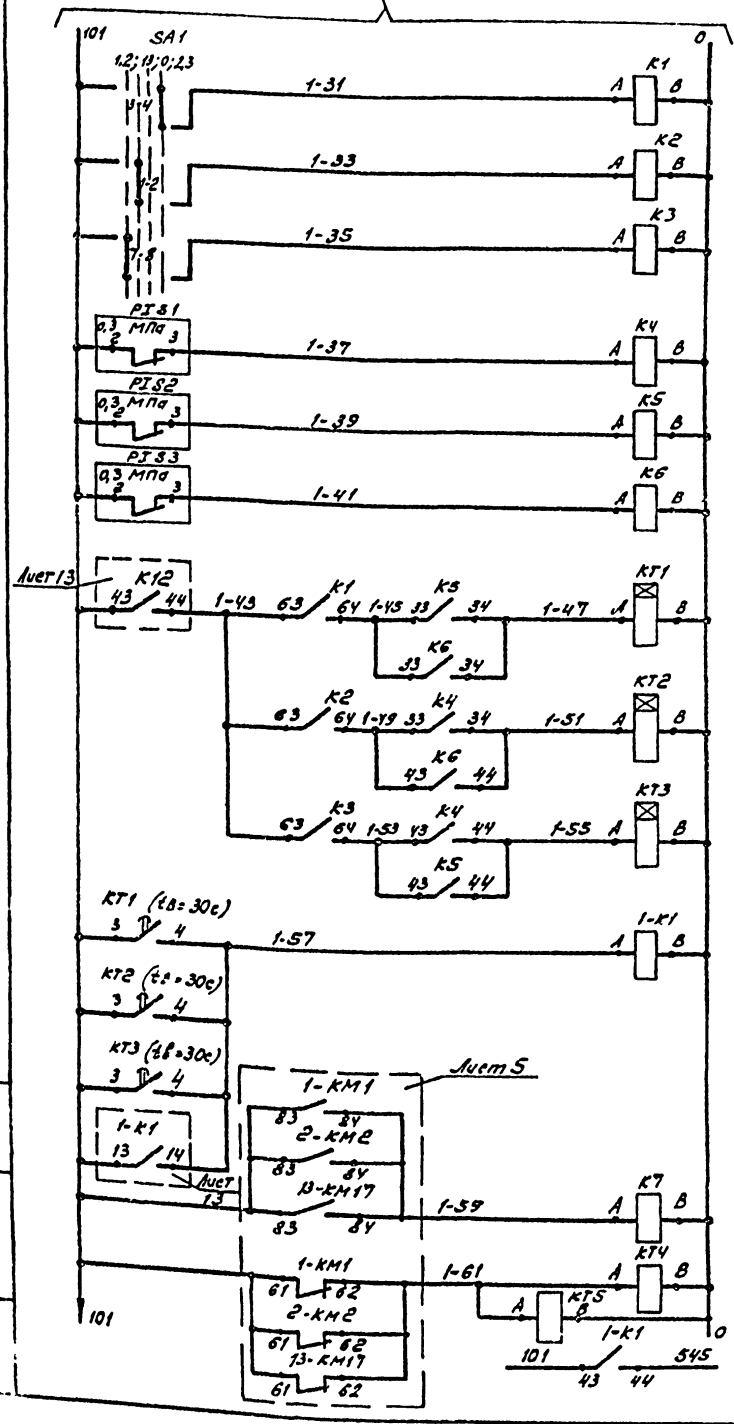 101 0
SA1
1,2; 1,3; 0; 2,3
3-4 1-31 A K1 B
1-2 1-33 A K2 B
7-8 1-35 A K3 B
PIS1
0,3 МПа
2 3 1-37 A K4 B
PIS2
0,3 МПа
2 3 1-39 A K5 B
PIS3
0,3 МПа
2 3 1-41 A K6 B
Лист 13
K12
43 44 1-43 63 K1 64 1-45 33 K5 34 1-47 A KT1 B
33 K6 34
63 K2 64 1-49 33 K4 34 1-51 A KT2 B
43 K6 44
63 K3 64 1-53 43 K4 44 1-55 A KT3 B
43 K5 44
KT1 (tв=30с)
3 4 1-57 A 1-K1 B
KT2 (tв=30с)
3 4
KT3 (tв=30с)
3 4
Лист 5
1-K1
13 14
Лист 13
1-KM1
83 84
2-KM2
83 84
13-KM17
83 84 1-59 A K7 B
1-KM1
61 62 1-61 A KT4 B
2-KM2
61 62
A KT5 B
13-KM17
61 62
101 0
1-K1
101 43 44 545